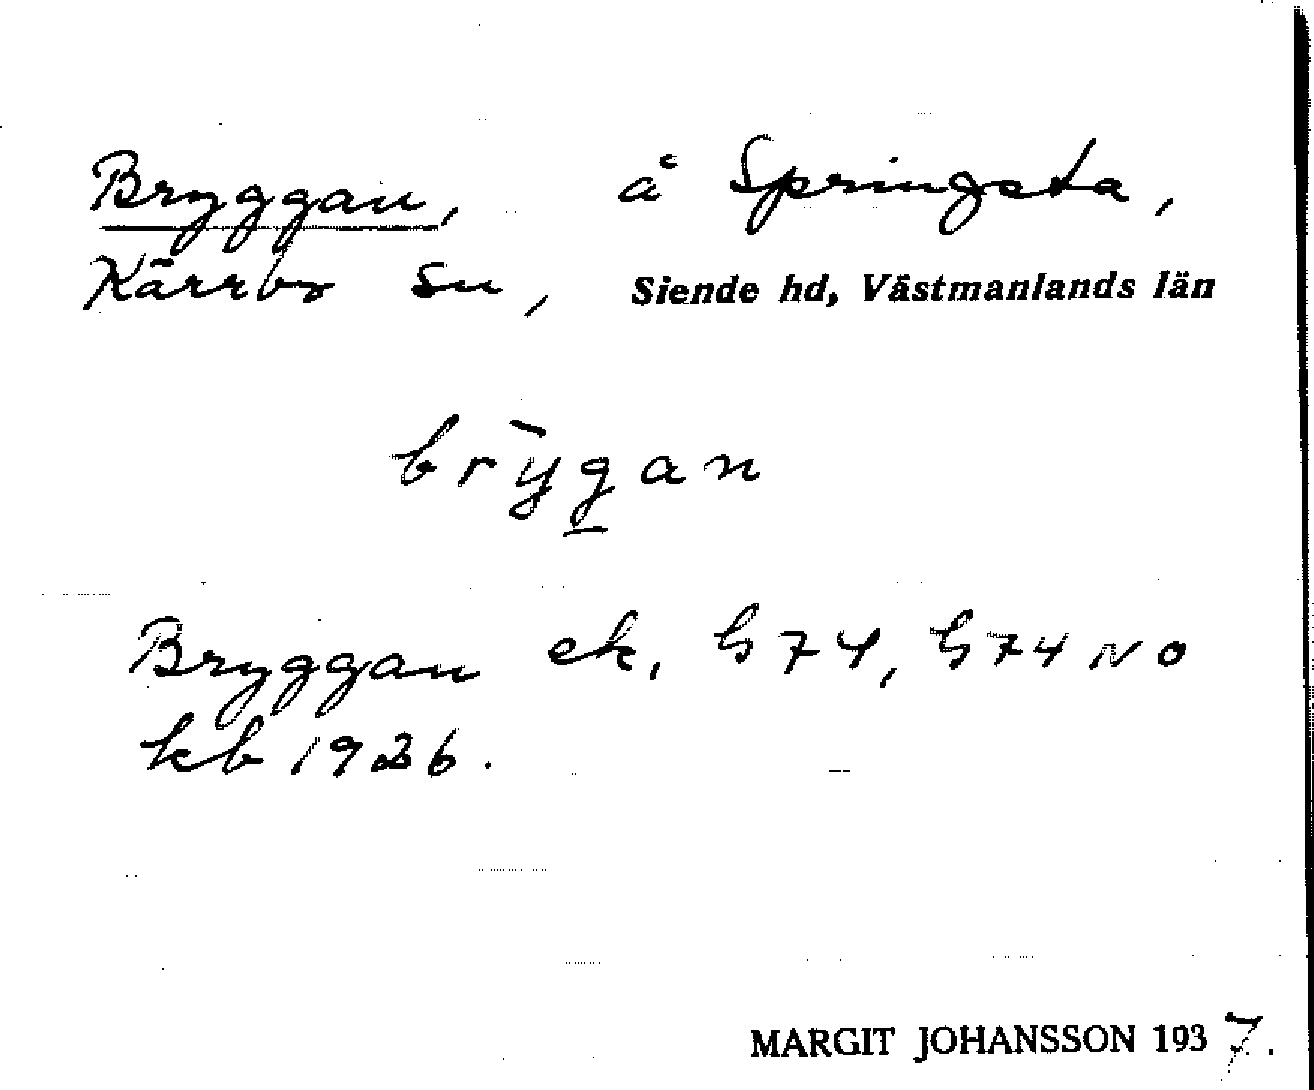 Bryggan, å Springsta,
Kärrbo sn, Siende hd, Västmanlands län
brỳgan
Bryggan ek, G74, G74 NO
kb 1926.
MARGIT JOHANSSON 1937.